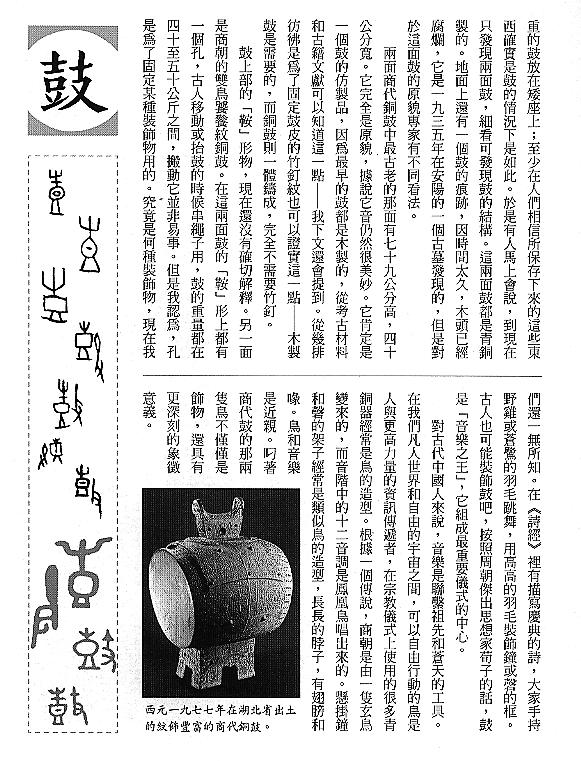 重的鼓放在矮座上；至少在人們相信所保存下來的這些東
西確實是鼓的情況下是如此。於是有人馬上會說，到現在
只發現兩面鼓，細看可發現鼓的結構。這兩面鼓都是青銅
製的。地面上還有一個鼓的痕跡，因時間太久，木頭已經
腐爛，它是一九三五年在安陽的一個古墓發現的，但是對
於這面鼓的原貌專家有不同看法。
兩面商代銅鼓中最古老的那面有七十九公分高，四十
公分寬。它完全是原貌，據說它音仍然很美妙。它肯定是
一個鼓的仿製品，因為最早的鼓都是木製的，從考古材料
和古籍文獻可以知道這一點——我下文還會提到。從幾排
彷彿是為了固定鼓皮的竹釘紋也可以證實這一點——木製
鼓是需要的，而銅鼓則一體鑄成，完全不需要竹釘。
鼓上部的「鞍」形物，現在還沒有確切解釋。另一面
是商朝的雙鳥饕餮紋銅鼓。在這兩面鼓的「鞍」形上都有
一個孔，古人移動或抬鼓的時候串繩子用，鼓的重量都在
四十至五十公斤之間，搬動它並非易事。但是我認為，孔
是為了固定某種裝飾物用的。究竟是何種裝飾物，現在我
們還一無所知。在《詩經》裡有描寫慶典的詩，大家手持
野雞或蒼鷺的羽毛跳舞，用高高的羽毛裝飾鐘或磬的框。
古人也可能裝飾鼓吧，按照周朝傑出思想家荀子的話，鼓
是「音樂之王」，它組成最重要儀式的中心。
對古代中國人來說，音樂是聯繫祖先和蒼天的工具。
在我們凡人世界和自由的宇宙之間，可以自由行動的鳥是
人與更高力量的資訊傳遞者，在宗教儀式上使用的很多青
銅器經常是鳥的造型。根據一個傳說，商朝是由一隻玄鳥
變來的，而音階中的十二音調是鳳凰鳥唱出來的。懸掛鐘
和磬的架子經常是類似鳥的造型，長長的脖子，有翅膀和
喙。鳥和音樂
是近親。叼著
商代鼓的那兩
隻鳥不僅僅是
飾物，還具有
更深刻的象徵
意義。
西元一九七七年在湖北省出土
的紋飾豐富的商代銅鼓。
鼓